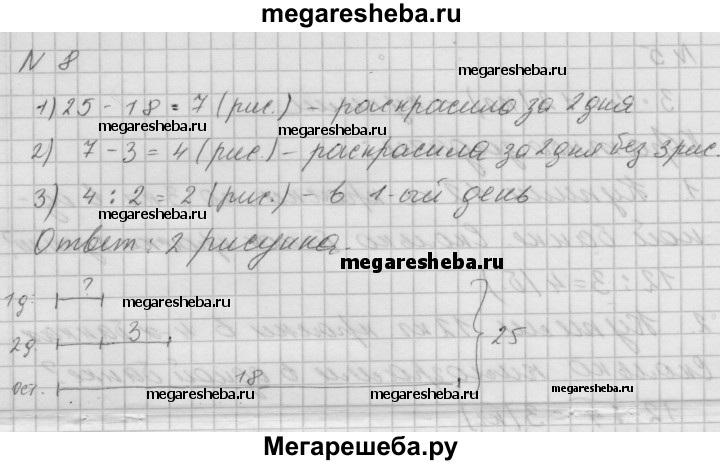 megaresheba.ru
N 8
megaresheba.ru
1) 25 - 18 = 7 (рис.) - раскрасила за 2 дня
megaresheba.ru megaresheba.ru
2) 7 - 3 = 4 (рис.) - раскрасила за 2 дня без 3 рис.
megaresheba.ru
3) 4 : 2 = 2 (рис.) - в 1-ый день
megaresheba.ru
Ответ: 2 рисунка.
megaresheba.ru
1д. ?
megaresheba.ru
2д. 3
25
ост. 18
megaresheba.ru megaresheba.ru megaresheba.ru
Мегарешеба.ру